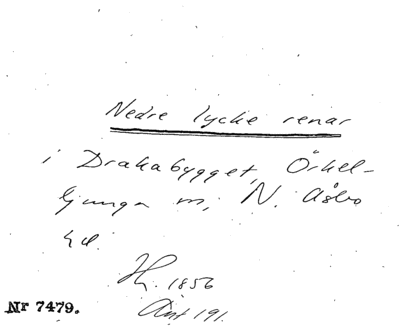 Nedre lycke renar
i Drakabygget, Örkel-
ljunga sn, N. Åsbo
hd.
Hy. 1856
Akt 191.
Nr 7479.